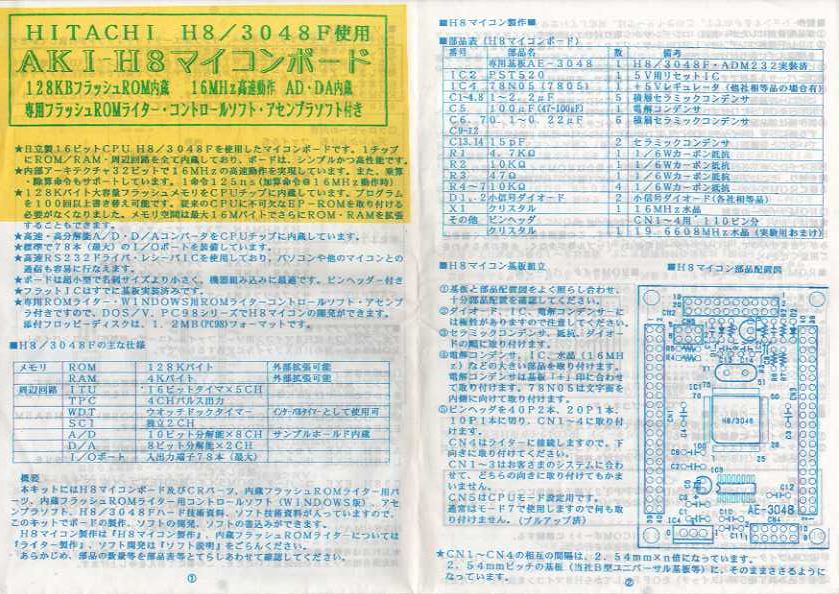 HITACHI H8/3048F使用
AKI-H8マイコンボード
128KBフラッシュROM内蔵 16MHz高速動作 AD・DA内蔵
専用フラッシュROMライター・コントロールソフト・アセンブラソフト付き
★日立製16ビットCPU H8/3048Fを使用したマイコンボードです。1チップ
にROM/RAM・周辺回路を全て内蔵しており、ボードは、シンプルかつ高性能です。
★内部アーキテクチャ32ビットで16MHzの高速動作を実現しています。また、乗算
・除算命令もサポートしています。1命令125ns(加算命令@16MHz動作時)
★128Kバイト大容量フラッシュメモリをCPUチップに内蔵しています。プログラム
を100回以上書き替え可能です。従来のCPUに不可欠なEP-ROMを取り付ける
必要がなくなりました。メモリ空間は最大16MバイトでさらにROM・RAMを拡張
することもできます。
★高速・高分解能A/D・D/AコンバータをCPUチップに内蔵しています。
★標準で78本(最大)のI/Oポートを装備しています。
★高速RS232ドライバ・レシーバICを使用しており、パソコンや他のマイコンとの
通信も容易に行なえます。
★ボードは超小型で名刺サイズより小さく、機器組み込みに最適です。ピンヘッダー付き
★フラットICはすでに基板実装済みです。
★専用ROMライター・WINDOWS用ROMライターコントロールソフト・アセンブ
ラ付きですので、DOS/V、PC98シリーズでH8マイコンの開発ができます。
添付フロッピーディスクは、1.2MB(PC98)フォーマットです。
■H8/3048Fの主な仕様
メモリ ROM 128Kバイト 外部拡張可能
RAM 4Kバイト 外部拡張可能
周辺回路 ITU 16ビットタイマ×5CH
TPC 4CHパルス出力
WDT ウオッチドックタイマー インターバルタイマーとして使用可
SCI 独立2CH
A/D 10ビット分解能×8CH サンプルホールド内蔵
D/A 8ビット分解能×2CH
I/Oポート 入出力端子78本(最大)
概要
本キットにはH8マイコンボード及びCRパーツ、内蔵フラッシュROMライター用パ
ーツ、内蔵フラッシュROMライター用コントロールソフト(WINDOWS版)、アセ
ンブラソフト、H8/3048Fハード技術資料、ソフト技術資料が入っていますので、
このキットでボードの製作、ソフトの開発、ソフトの書込みができます。
H8マイコン製作は『H8マイコン製作』、内蔵フラッシュROMライターについては
『ライター製作』、ソフト開発は『ソフト説明』をごらんください。
あらかじめ、部品の数量等を部品表等とてらしあわせて確認してください。
①
■H8マイコン製作■
■部品表(H8マイコンボード)
番号 部品名 数 備考
専用基板AE-3048 1 H8/3048F・ADM232実装済
IC2 PST520 1 5V用リセットIC
IC4 78N05(7805) 1 +5Vレギュレータ(他社相等品の場合有)
C1~4,8 1~2.2μF 5 積層セラミックコンデンサ
C5 100μF(47~100μF) 1 電解コンデンサ
C6,7 0.1~0.22μF 6 積層セラミックコンデンサ
C9~12
C13,14 15pF 2 セラミックコンデンサ
R1 4.7K 1 1/6Wカーボン抵抗
R2 10KΩ 1 1/6Wカーボン抵抗
R3 47Ω 1 1/6Wカーボン抵抗
R4~7 10KΩ 4 1/6Wカーボン抵抗
D1,2 小信号ダイオード 2 小信号ダイオード(各社相等品)
X1 クリスタル 1 16MHz水晶
その他 ピンヘッダ CN1~4用 110ピン分
クリスタル 1 19.6608MHz水晶(実験用おまけ)
■H8マイコン基板組立
①基板と部品配置図をよく照らし合わせ、
十分部品配置を確認してください。
②ダイオード、IC、電解コンデンサーに
は極性がありますので注意してください。
③セラミックコンデンサ、抵抗、ダイオー
ドの順に取り付けます。
④電解コンデンサ、IC、水晶(16MH
z)などの大きい部品を取り付けます。
電解コンデンサは基板「+」印に合わせ
て取り付けます。78N05は文字面を
内側に向けて取り付けます。
⑤ピンヘッダを40P2本、20P1本、
10P1本に切り、CN1~4に取り付
けます。
CN4はライターに接続しますので、下
向きに取り付けてください。
CN1~3はお客さまのシステムに合わ
せて、どちらの向きに取り付けてもかま
いません。
CN5はCPUモード設定用です。
通常はモード7で使用しますので何も取
り付けません。(プルアップ済)
■H8マイコン部品配置図
H8/3048
AE-3048
★CN1~CN4の相互の間隔は、2.54mm×n倍になっています。
2.54mmピッチの基板(当社B型ユニバーサル基板等)に、そのままささるように
なっています。
②